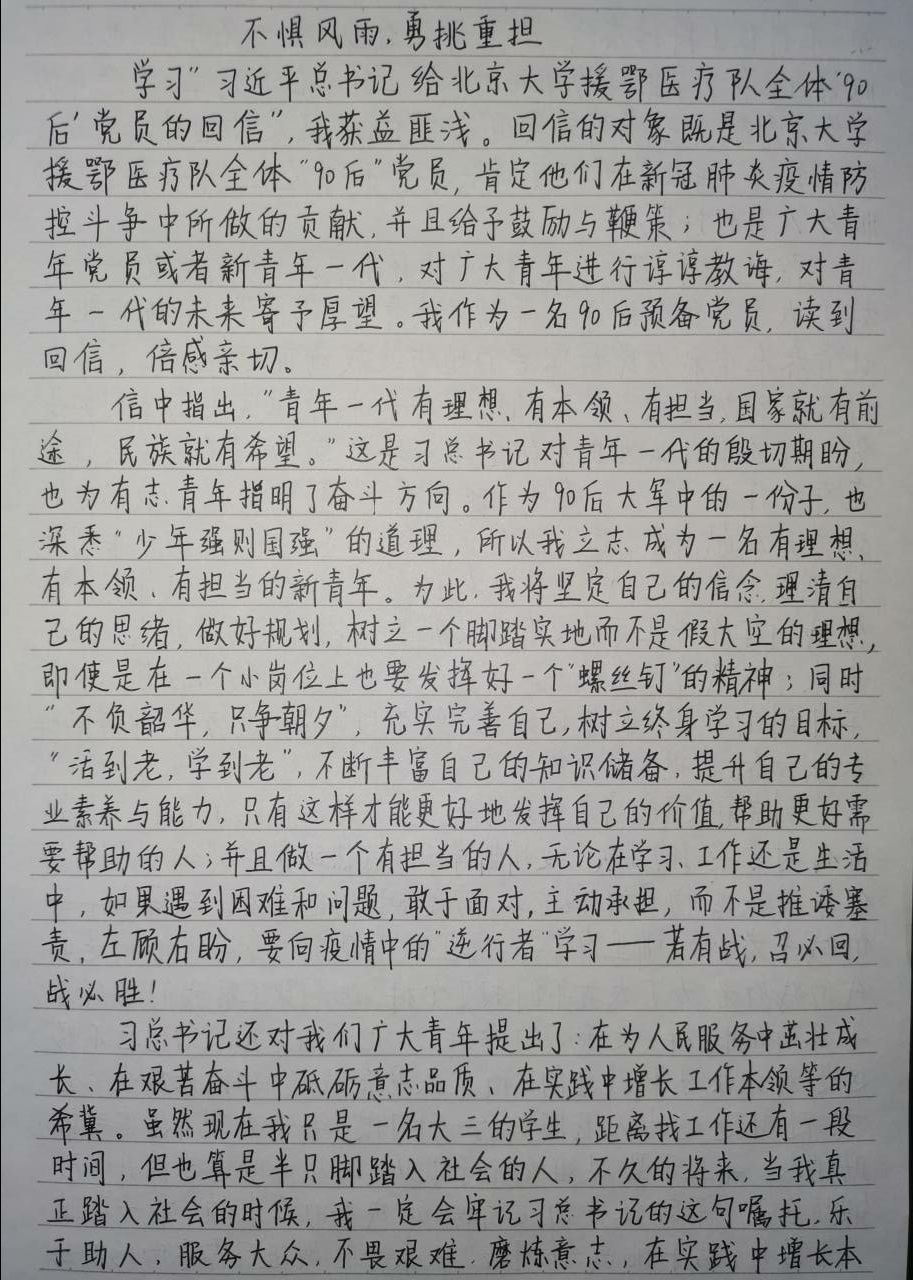 不惧风雨,勇挑重担
学习"习近平总书记给北京大学援鄂医疗队全体'90
后'党员的回信",我获益匪浅。回信的对象既是北京大学
援鄂医疗队全体"90后"党员,肯定他们在新冠肺炎疫情防
控斗争中所做的贡献,并且给予鼓励与鞭策;也是广大青
年党员或者新青年一代,对广大青年进行谆谆教诲,对青
年一代的未来寄予厚望。我作为一名90后预备党员,读到
回信,倍感亲切。
信中指出,"青年一代有理想、有本领、有担当,国家就有前
途,民族就有希望。"这是习总书记对青年一代的殷切期盼,
也为有志青年指明了奋斗方向。作为90后大军中的一份子,也
深悉"少年强则国强"的道理,所以我立志成为一名有理想、
有本领、有担当的新青年。为此,我将坚定自己的信念,理清自
己的思绪,做好规划,树立一个脚踏实地而不是假大空的理想,
即使是在一个小岗位上也要发挥好一个"螺丝钉"的精神;同时
"不负韶华,只争朝夕",充实完善自己,树立终身学习的目标,
"活到老,学到老",不断丰富自己的知识储备,提升自己的专
业素养与能力,只有这样才能更好地发挥自己的价值,帮助更好需
要帮助的人;并且做一个有担当的人,无论在学习、工作还是生活
中,如果遇到困难和问题,敢于面对,主动承担,而不是推诿塞
责,左顾右盼,要向疫情中的"逆行者"学习——若有战,召必回,
战必胜!
习总书记还对我们广大青年提出了:在为人民服务中茁壮成
长、在艰苦奋斗中砥砺意志品质、在实践中增长工作本领等的
希冀。虽然现在我只是一名大三的学生,距离找工作还有一段
时间,但也算是半只脚踏入社会的人,不久的将来,当我真
正踏入社会的时候,我一定会牢记习总书记的这句嘱托,乐
于助人,服务大众,不畏艰难,磨炼意志,在实践中增长本